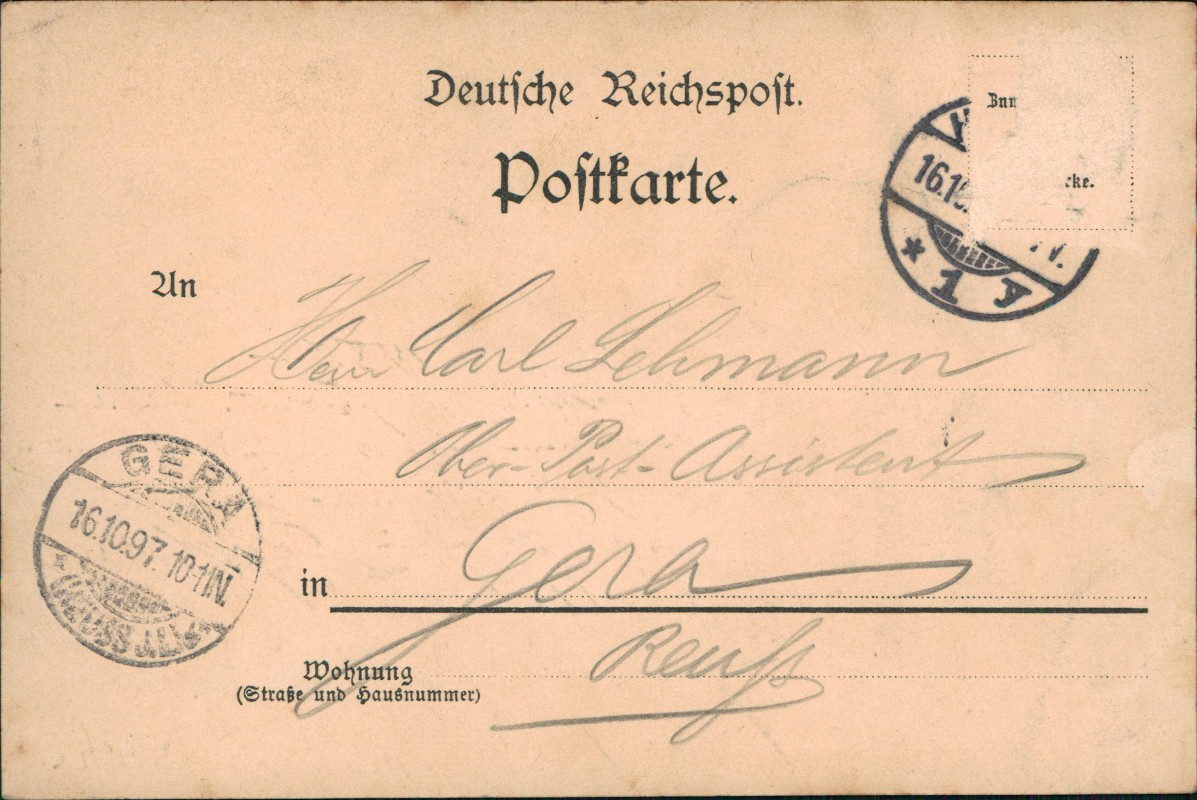 Deutsche Reichspost.
Postkarte.
16.10
1 y
An
Herrn Carl Lehmann
Ober-Post-Assistent
GERA
16.10.97. 10-11N.
in Gera
Reuß
Wohnung
(Straße und Hausnummer)